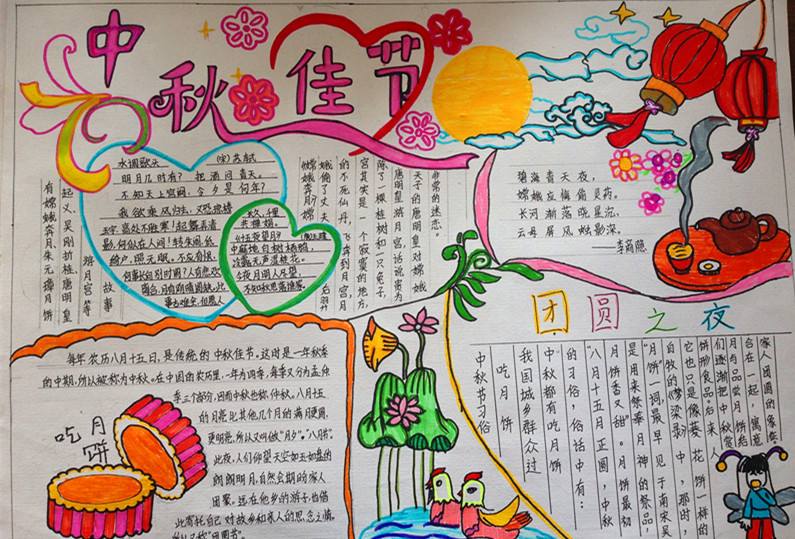 中秋佳节
水调歌头 (宋)苏轼
明月几时有？把酒问青天。
不知天上宫阙，今夕是何年？
我欲乘风归去，又恐琼楼
玉宇，高处不胜寒！起舞弄清
影，何似在人间！转朱阁，低
绮户，照无眠。不应有恨，
何事长向别时圆？人有悲欢
离合，月有阴晴圆缺，此
事古难全。但愿人
长久，千里
共婵娟。
十五夜望月
中庭地白树栖鸦，
冷露无声湿桂花。
今夜月明人尽望，
不知秋思落谁家。
有嫦娥奔月、朱元璋月饼
起义、吴刚折桂、唐明皇
游月宫等
故事
嫦娥奔月：
嫦娥偷了丈夫
后羿
的不死仙丹，飞奔到月宫，月
宫其实是一个寂寞的地方，
除了一棵桂树和一只兔子，
唐明皇游月宫话说贵为
天子的唐明皇对嫦娥
非常的迷恋。
碧海青天夜，
嫦娥应悔偷灵药。
长河渐落晓星沉，
云母屏风烛影深。
—李商隐
每年农历八月十五日，是传统的中秋佳节。这时是一年秋季
的中期，所以被称为中秋。在中国的农历里，一年分为四季，每季又分为孟仲
季三个部分，因而中秋也称仲秋。八月十五
的月亮比其他几个月的满月更圆，
更明亮，所以又叫做“月夕”，“八月节”。
此夜，人们仰望天空如玉如盘的
朗朗明月，自然会期盼家人
团聚。远在他乡的游子，也借
此寄托自己对故乡和亲人的思念之情。
所以又称“团圆节”。
吃月饼
团圆之夜
中秋节习俗
吃月饼
我国城乡群众过
中秋都有吃月饼
的习俗，俗话中有：
“八月十五月正圆，中秋
月饼香又甜”。月饼最初
是用来祭奉月神的祭品，
“月饼”一词，最早见于南宋吴
自牧的《梦梁录》中，那时，
它也只是像菱花饼一样的
饼形食品。后来人
们逐渐把中秋赏
月与品尝月饼结
合在一起，寓意
家人团圆的象